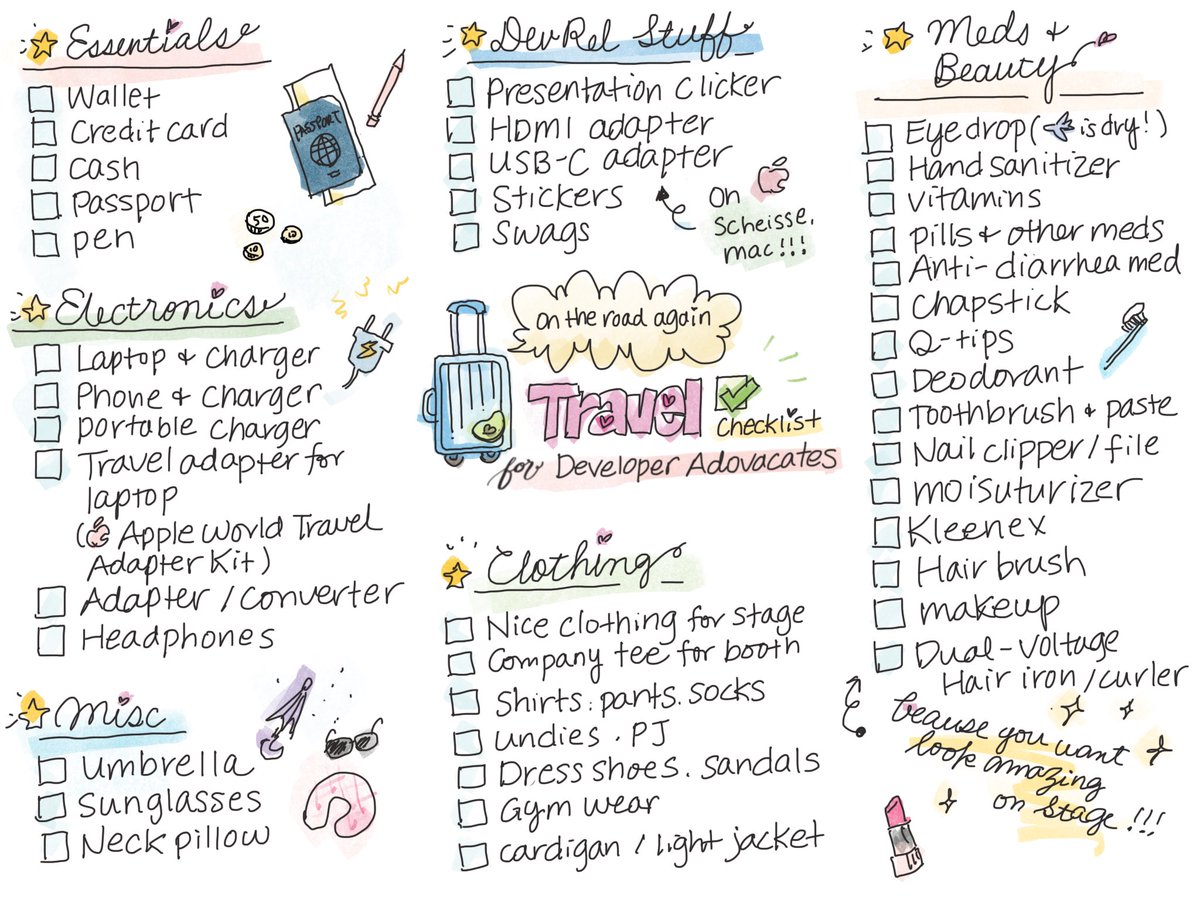 Essentials
Wallet
Credit card
Cash
Passport
pen
PASSPORT
50
10
10
Electronics
Laptop & charger
Phone & charger
portable charger
Travel adapter for
laptop
(Apple World Travel
Adapter Kit)
Adapter / converter
Headphones
Misc
umbrella
sunglasses
Neck pillow
DevRel Stuff
Presentation clicker
HDMI adapter
USB-C adapter
Stickers
Swags
on
Scheisse.
mac!!!
on the road again
Travel
checklist
for Developer Adovacates
Clothing
Nice clothing for stage
Company tee for booth
Shirts. pants. socks
undies. PJ
Dress shoes. sandals
Gym wear
cardigan / light jacket
Meds &
Beauty
Eyedrop (is dry!)
Hand sanitizer
vitamins
pills & other meds
Anti-diarrhea med
Chapstick
Q-tips
Deodorant
Toothbrush & paste
Nail clipper / file
moisuturizer
Kleenex
Hair brush
makeup
Dual-voltage
Hair iron / curler
beause you want
look amazing
on stage!!!